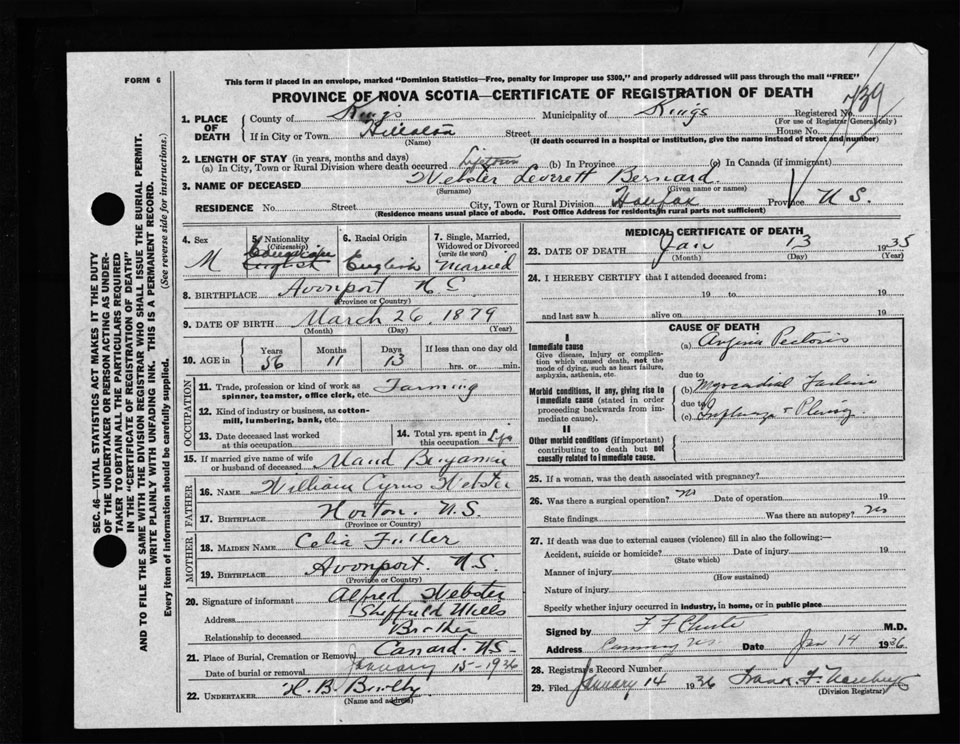 FORM 6
This form if placed in an envelope, marked "Dominion Statistics—Free, penalty for improper use $300," and properly addressed will pass through the mail "FREE"
PROVINCE OF NOVA SCOTIA—CERTIFICATE OF REGISTRATION OF DEATH
739
1. PLACE OF DEATH
County of Kings Municipality of Kings Registered No.
(For use of Registrar General only)
If in City or Town Street House No.
(Name) (If death occurred in a hospital or institution, give the name instead of street and number)
2. LENGTH OF STAY (in years, months and days)
(a) In City, Town or Rural Division where death occurred (b) In Province (c) In Canada (if immigrant)
3. NAME OF DECEASED Webster Leverett Bernard
(Surname) (Given name or names)
RESIDENCE No. Street City, Town or Rural Division Halifax Province N.S.
(Residence means usual place of abode. Post Office Address for residents in rural parts not sufficient)
4. Sex M
5. Nationality (Citizenship) Canadian English
6. Racial Origin English
7. Single, Married, Widowed or Divorced (write the word) Married
8. BIRTHPLACE Avonport
(Province or Country)
9. DATE OF BIRTH March 26, 1879
(Month) (Day) (Year)
10. AGE in Years Months Days If less than one day old
56 11 13 hrs. or min.
OCCUPATION
11. Trade, profession or kind of work as spinner, teamster, office clerk, etc. Farming
12. Kind of industry or business, as cotton-mill, lumbering, bank, etc.
13. Date deceased last worked at this occupation
14. Total yrs. spent in this occupation Life
15. If married give name of wife or husband of deceased Maud Benjamin
FATHER
16. NAME William Cyrus Webster
17. BIRTHPLACE Horton. N.S.
(Province or Country)
MOTHER
18. MAIDEN NAME Celia Fuller
19. BIRTHPLACE Avonport. N.S.
(Province or Country)
20. Signature of informant Alfred Webster
Address Sheffield Mills
Relationship to deceased Brother
21. Place of Burial, Cremation or Removal Canard. N.S.
Date of burial or removal January 15-1936
22. UNDERTAKER
(Name and address)
MEDICAL CERTIFICATE OF DEATH
23. DATE OF DEATH Jan 13 1935
(Month) (Day) (Year)
24. I HEREBY CERTIFY that I attended deceased from:
19 to 19
and last saw h alive on 19
CAUSE OF DEATH
I
Immediate cause
Give disease, injury or complication which caused death, not the mode of dying, such as heart failure, asphyxia, asthenia, etc.
(a) Angina Pectoris
due to
Morbid conditions, if any, giving rise to immediate cause (stated in order proceeding backwards from immediate cause).
(b) Myocardial Failure
due to
(c) Influenza + Pleurisy
II
Other morbid conditions (if important) contributing to death but not causally related to immediate cause.
25. If a woman, was the death associated with pregnancy?
26. Was there a surgical operation? no Date of operation 19
State findings Was there an autopsy? no
27. If death was due to external causes (violence) fill in also the following:—
Accident, suicide or homicide? Date of injury 19
(State which)
Manner of injury
(How sustained)
Nature of injury
Specify whether injury occurred in industry, in home, or in public place
Signed by M.D.
Address Date Jan 14 1936
28. Registrar's Record Number
29. Filed January 14 1936
(Division Registrar)
SEC. 46—VITAL STATISTICS ACT MAKES IT THE DUTY
OF THE UNDERTAKER OR PERSON ACTING AS UNDER-
TAKER TO OBTAIN ALL THE PARTICULARS REQUIRED
IN THE "CERTIFICATE OF REGISTRATION OF DEATH"
AND TO FILE THE SAME WITH THE DIVISION REGISTRAR WHO SHALL ISSUE THE BURIAL PERMIT.
WRITE PLAINLY WITH UNFADING INK. THIS IS A PERMANENT RECORD.
Every item of information should be carefully supplied. (See reverse side for instructions.)